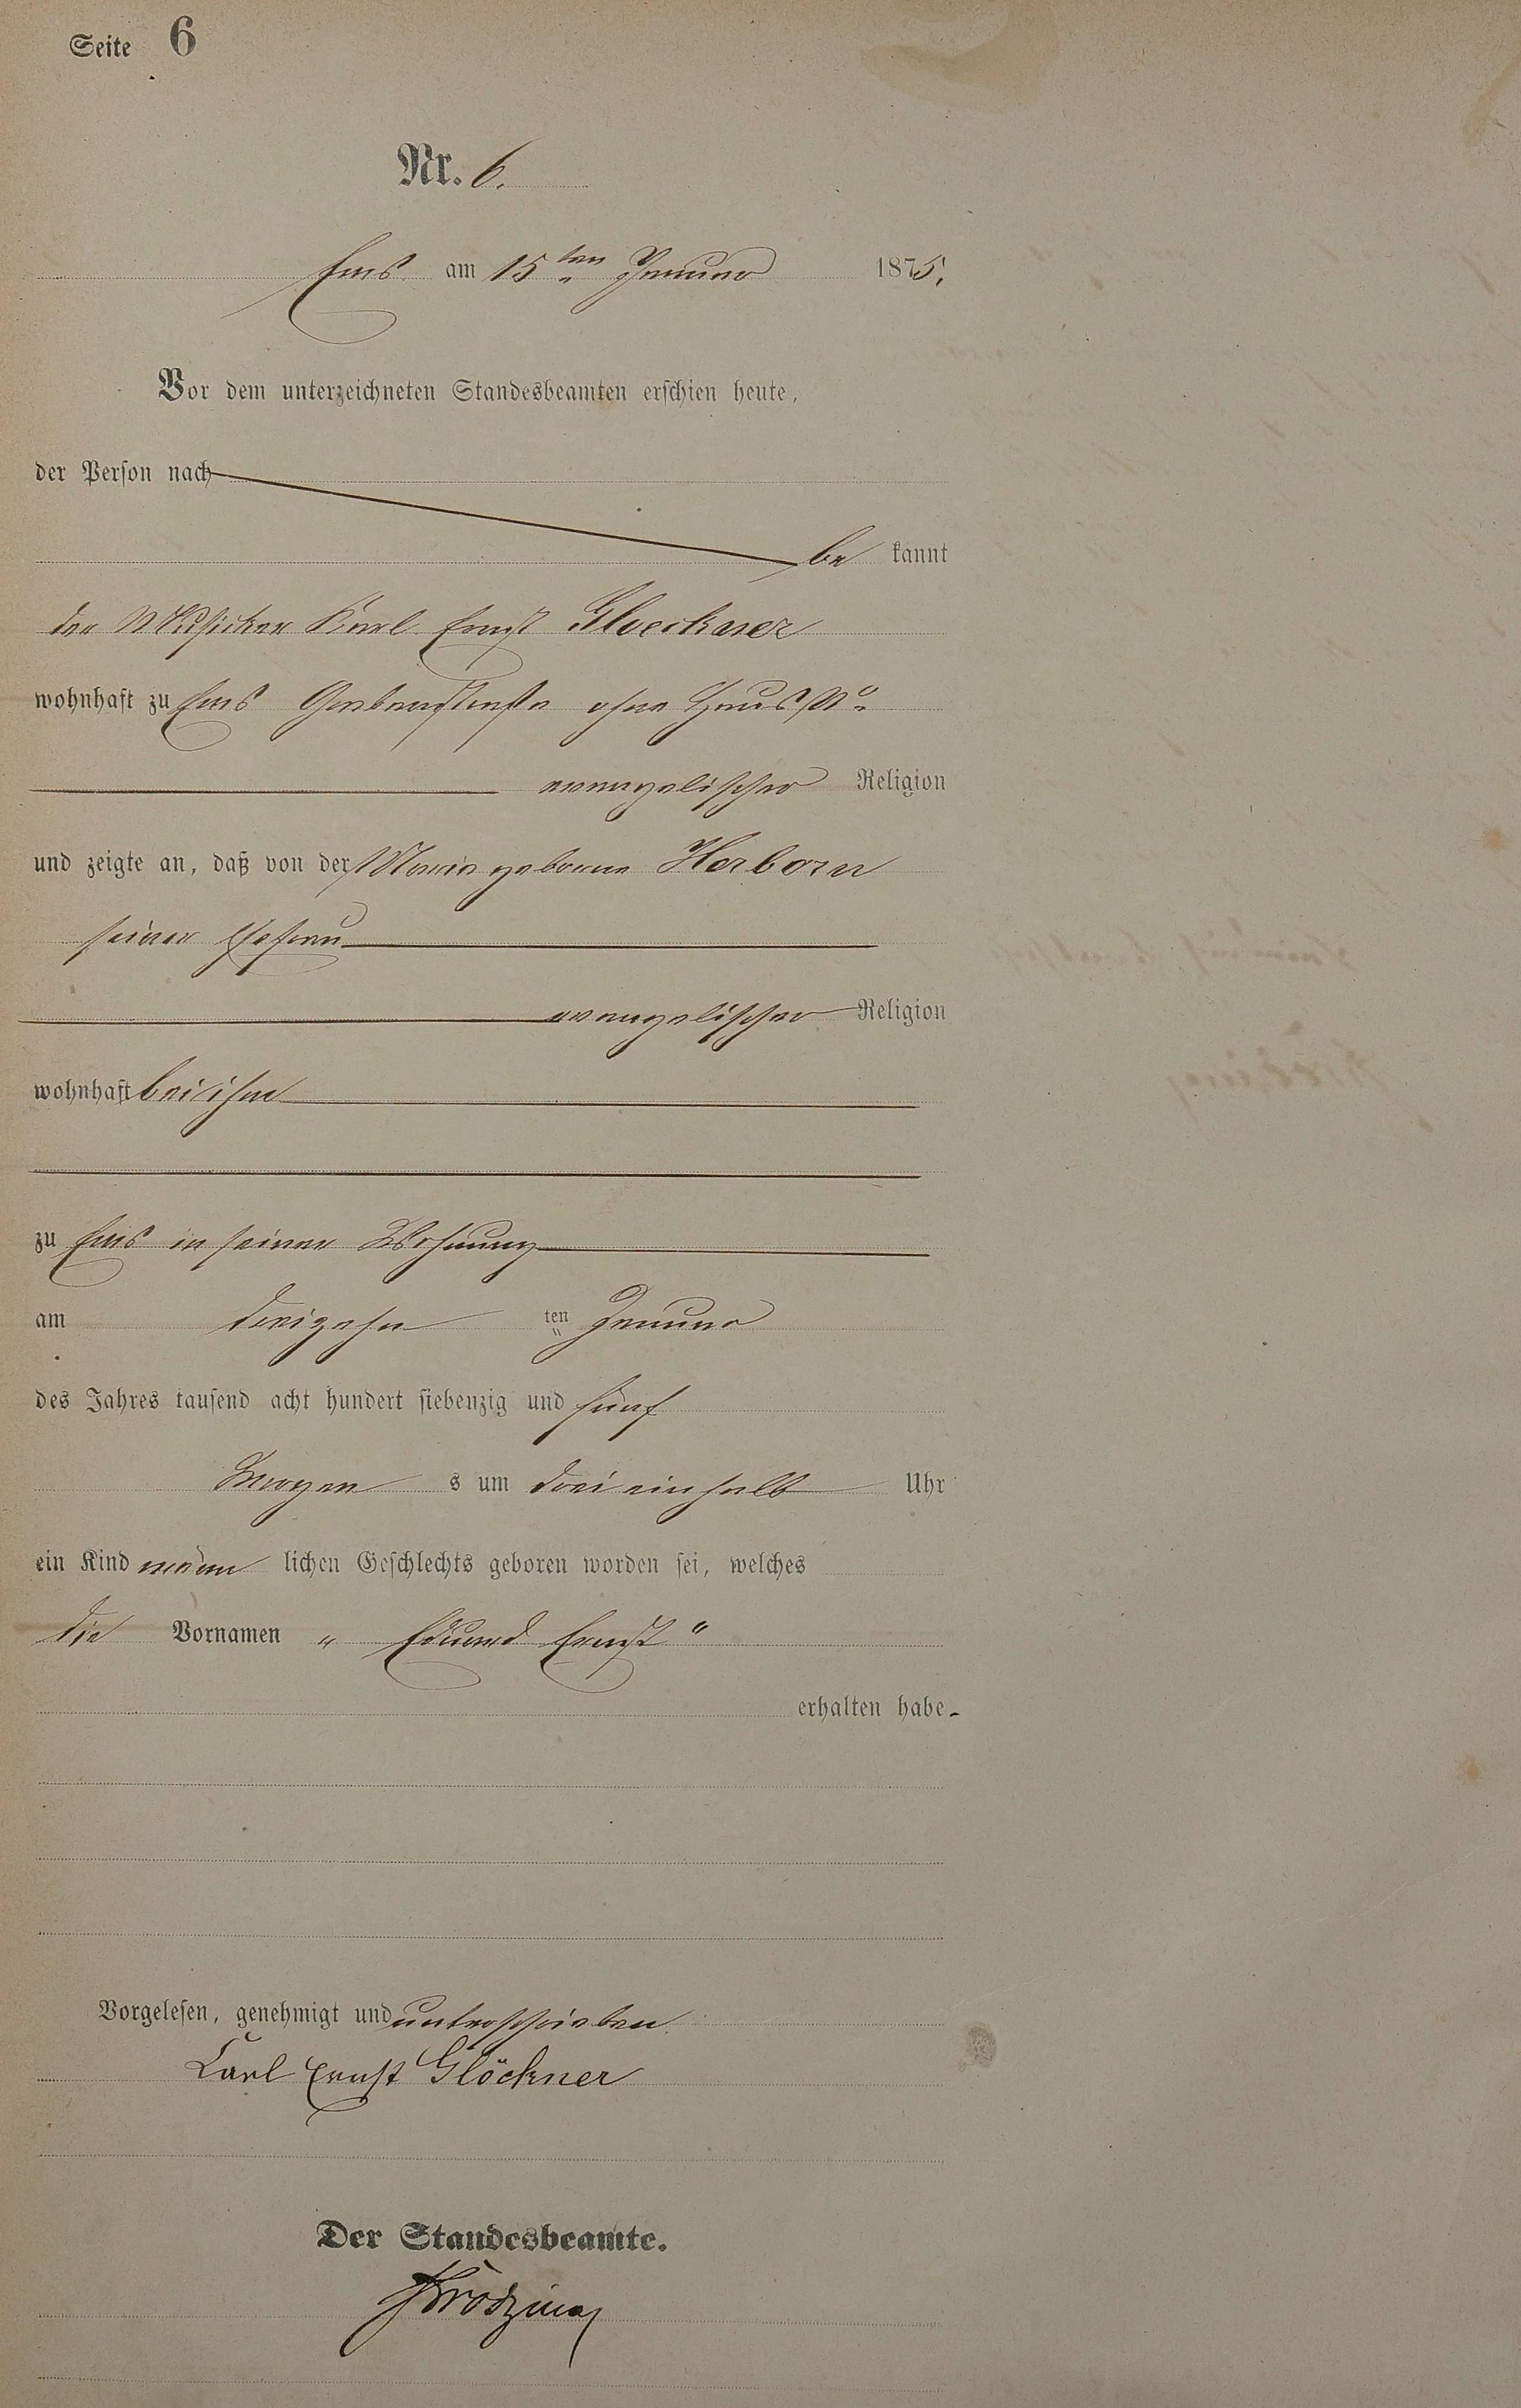 Seite 6
Nr. 6.
Ems am 15ten Januar 1875.
Vor dem unterzeichneten Standesbeamten erschien heute,
der Person nach
be kannt
der Musicker Karl Ernst Gloeckner
wohnhaft zu Ems ohne Haus No
evangelischer Religion
und zeigte an, daß von der Maria geborne Herborn
seiner Ehefrau
evangelischer Religion
wohnhaft bei ihm
zu Ems in seiner Wohnung
am dreizehn ten Januar
des Jahres tausend acht hundert siebenzig und fünf
Morgen s um drei einhalb Uhr
ein Kind männ lichen Geschlechts geboren worden sei, welches
die Vornamen „ Eduard Ernst “
erhalten habe.
Vorgelesen, genehmigt und unterschrieben
Carl Ernst Glöckner
Der Standesbeamte.